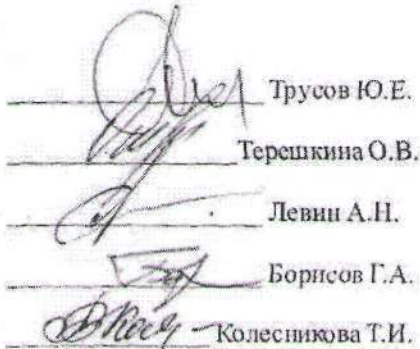 Трусов Ю.Е.
Терешкина О.В.
Левин А.Н.
Борисов Г.А.
Колесникова Т.И.